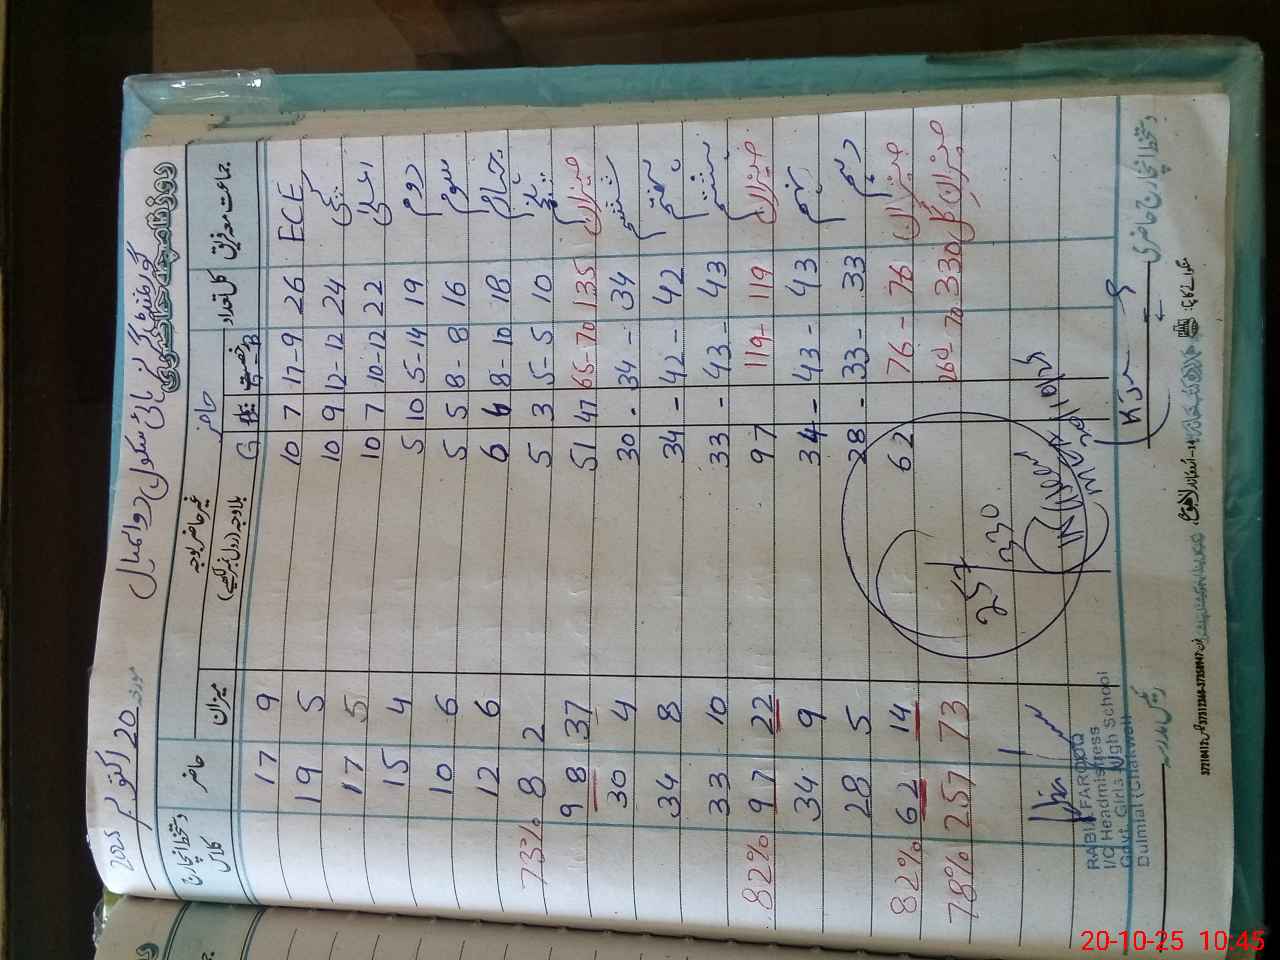 گورنمنٹ گرلز ہائی سکول دوالمیال
روزنامچہ حاضری
مورخہ 20 اکتوبر 2025
جماعت معہ فریق کل تعداد حاضر غیر حاضر بوجہ میزان حاضر دستخط انچارج کلاس
رخصت بلا وجہ (رول نمبر لکھیے)
G B
ECE 26 17-9 7 10 9 17
کچی 24 12-12 9 10 5 19
اعلیٰ 22 10-12 7 10 5 17
دوم 19 5-14 10 5 4 15
سوم 16 8-8 5 5 6 10
چہارم 18 8-10 6 6 6 12
پنجم 10 5-5 3 5 2 8 73%
میزان 135 65-70 47 51 37 98
ششم 34 34- - 30 4 30
ہفتم 42 42- - 34 8 34
ہشتم 43 43- - 33 10 33
میزان 119 119- 97 22 97 82%
نہم 43 43- - 34 9 34
دہم 33 33- - 28 5 28
میزان 76 76- 62 14 62 82%
میزان کل 330 260-70 73 257 78%
257
330
MCA 20/10/25
RABIA FAROOQ
I/C Headmistress
Govt. Girls High School
Dulmial (Chakwal)
دستخط انچارج حاضری
20-10-25 10:45